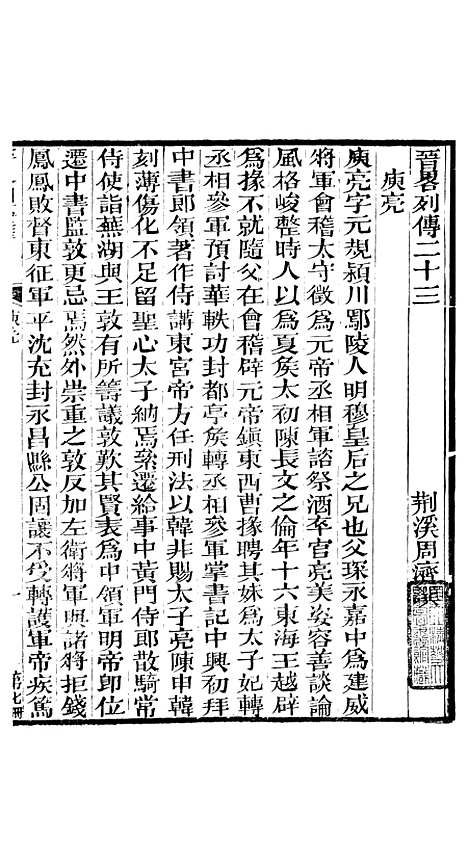 晉畧列傳二十三
荆溪周濟譔
庾亮
庾亮字元規潁川鄢陵人明穆皇后之兄也父琛永嘉中爲建威
將軍會稽太守徵爲元帝丞相軍諮祭酒卒官亮美姿容善談論
風格峻整時人以爲夏矦太初陳長文之倫年十六東海王越辟
爲掾不就隨父在會稽辟元帝鎭東西曹掾聘其妹爲太子妃轉
丞相參軍預討華軼功封都亭矦轉丞相參軍掌書記中興初拜
中書郎領著作侍講東宮帝方任刑法以韓非賜太子亮陳申韓
刻薄傷化不足留聖心太子納焉絫遷給事中黃門侍郎散騎常
侍使詣蕪湖與王敦有所籌議敦歎其賢表爲中領軍明帝卽位
遷中書監敦更忌焉然外崇重之敦反加左衛將軍與諸將拒錢
鳳鳳敗督東征軍平沈充封永昌縣公固讓不受轉護軍帝疾篤
第七冊